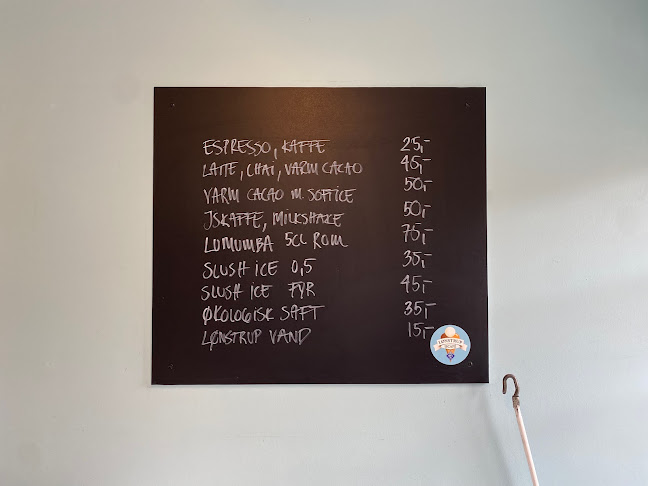 ESPRESSO, KAFFE 25,-
LATTE, CHAI, VARM CACAO 45,-
VARM CACAO M. SOFTICE 50,-
ISKAFFE, MILKSHAKE 50,-
LUMUMBA 5CL ROM 75,-
SLUSH ICE 0,5 35,-
SLUSH ICE FYR 45,-
ØKOLOGISK SAFT 35,-
LØNSTRUP VAND 15,-